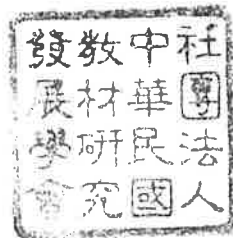 社團法人
中華民國
教材研究
發展學會